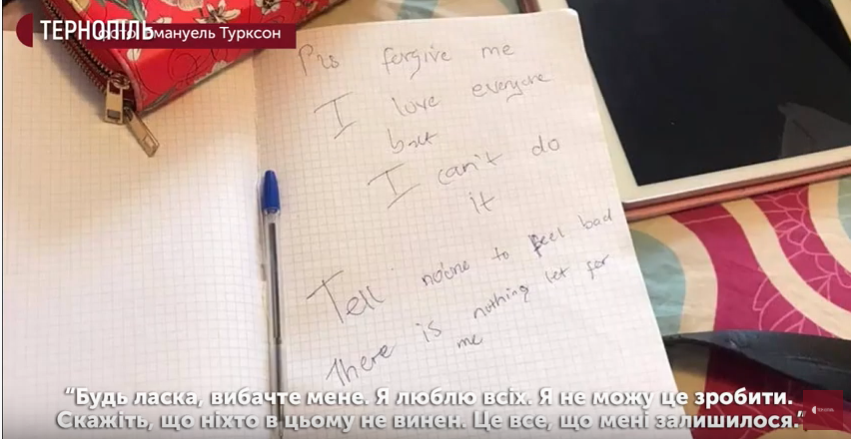 ТЕРНОПІЛЬ
фото: Емануель Турксон
Pls forgive me
I love everyone
but
I can't do
it
Tell noone to feel bad
There is nothing let for
me
“Будь ласка, вибачте мене. Я люблю всіх. Я не можу це зробити.
Скажіть, що ніхто в цьому не винен. Це все, що мені залишилося.”
ТЕРНОПІЛЬ